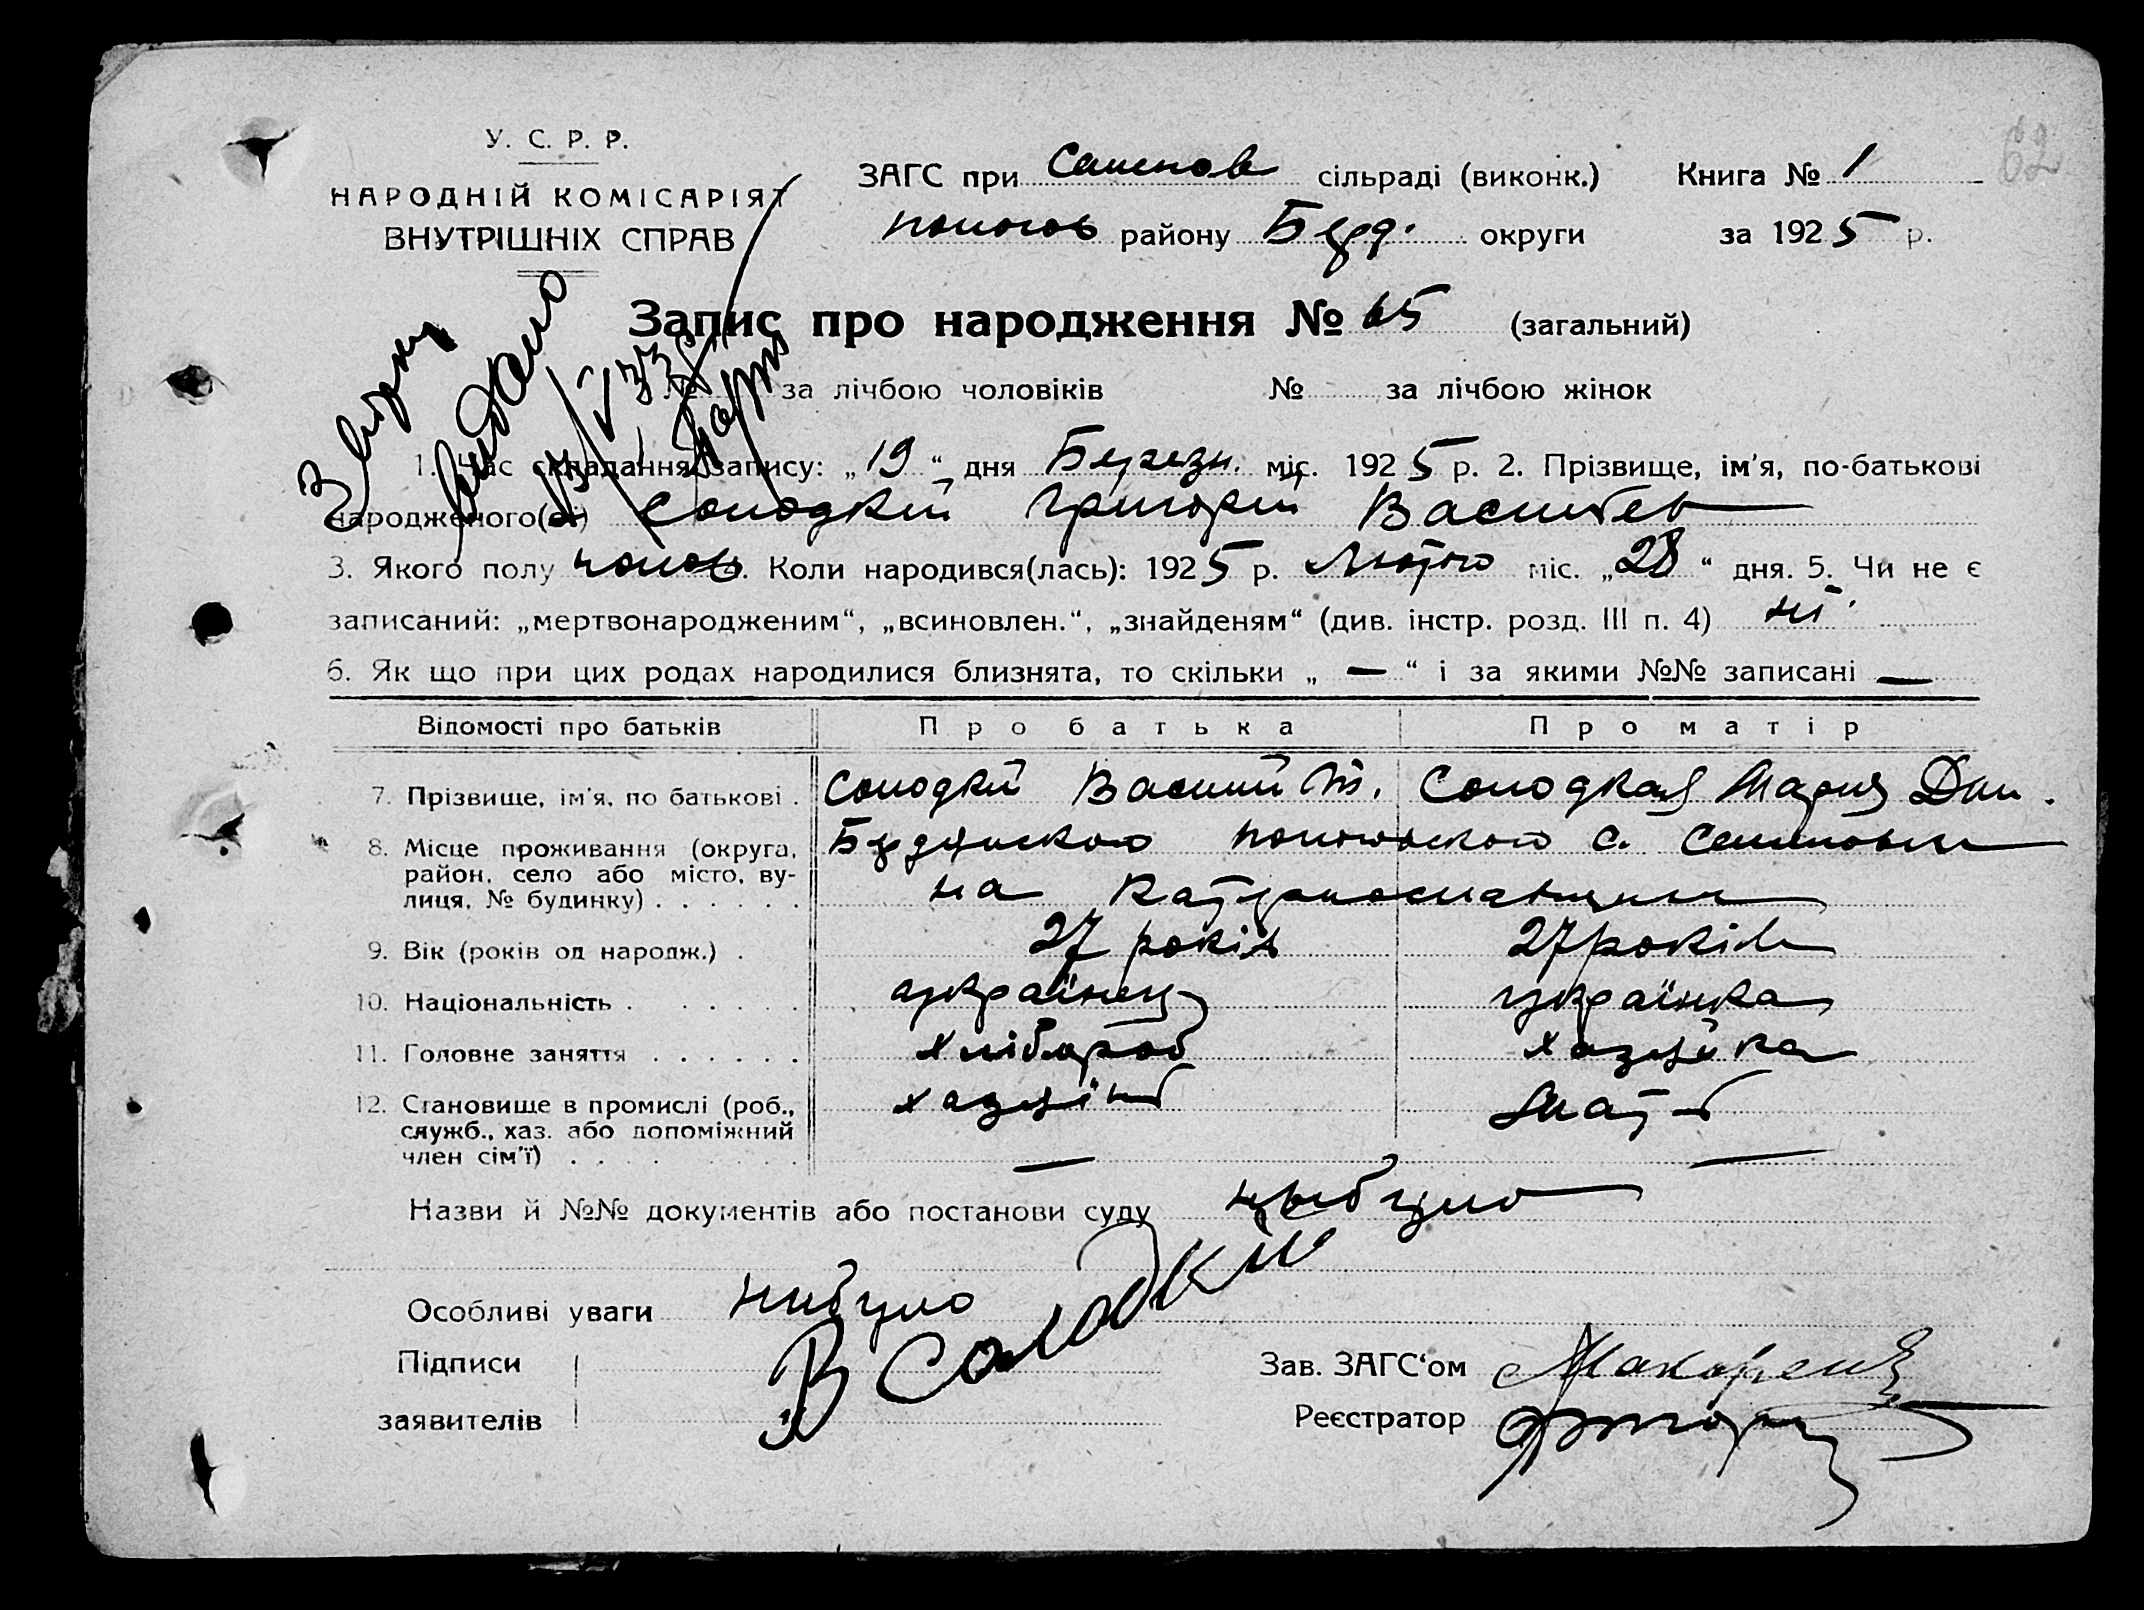 62
У. С. Р. Р.
НАРОДНІЙ КОМІСАРІЯТ
ВНУТРІШНІХ СПРАВ
ЗАГС при Семенов сільраді (виконк.) Книга № 1
пологов району Берд. округи за 1925 р.
Запис про народження № 65 (загальний)
№ за лічбою чоловіків № за лічбою жінок
видано
1. Час складання запису: „19“ дня Березн. міс. 1925 р. 2. Прізвище, ім'я, по-батькові
народженого(ої) Солодкий Григорій Василев
3. Якого полу чолов. 4. Коли народився(лась): 1925 р. Лютого міс. „28“ дня. 5. Чи не є
записаний: „мертвонародженим“, „всиновлен.“, „знайденям“ (див. інстр. розд. III п. 4) ні
6. Як що при цих родах народилися близнята, то скільки „ — “ і за якими №№ записані —
Відомості про батьків Про батька Про матір
7. Прізвище, ім'я, по батькові . Солодкий Василий Солодкая Мария Дан.
8. Місце проживання (округа, район, село або місто, вулиця, № будинку) . . . . . . Бердянского пологовского с. Семеновки
на
9. Вік (років од народж.) . 27 років 27 років
10. Національність . . . . . . українец українка
11. Головне заняття . . . . . . хлібороб хазяйка
12. Становище в промислі (роб., служб., хаз. або допоміжний член сім'ї) . . . . хазяїн мать
— —
Назви й №№ документів або постанови суду небуло
Особливі уваги небуло
Підписи заявителів В Солодкий
Зав. ЗАГС'ом
Реєстратор